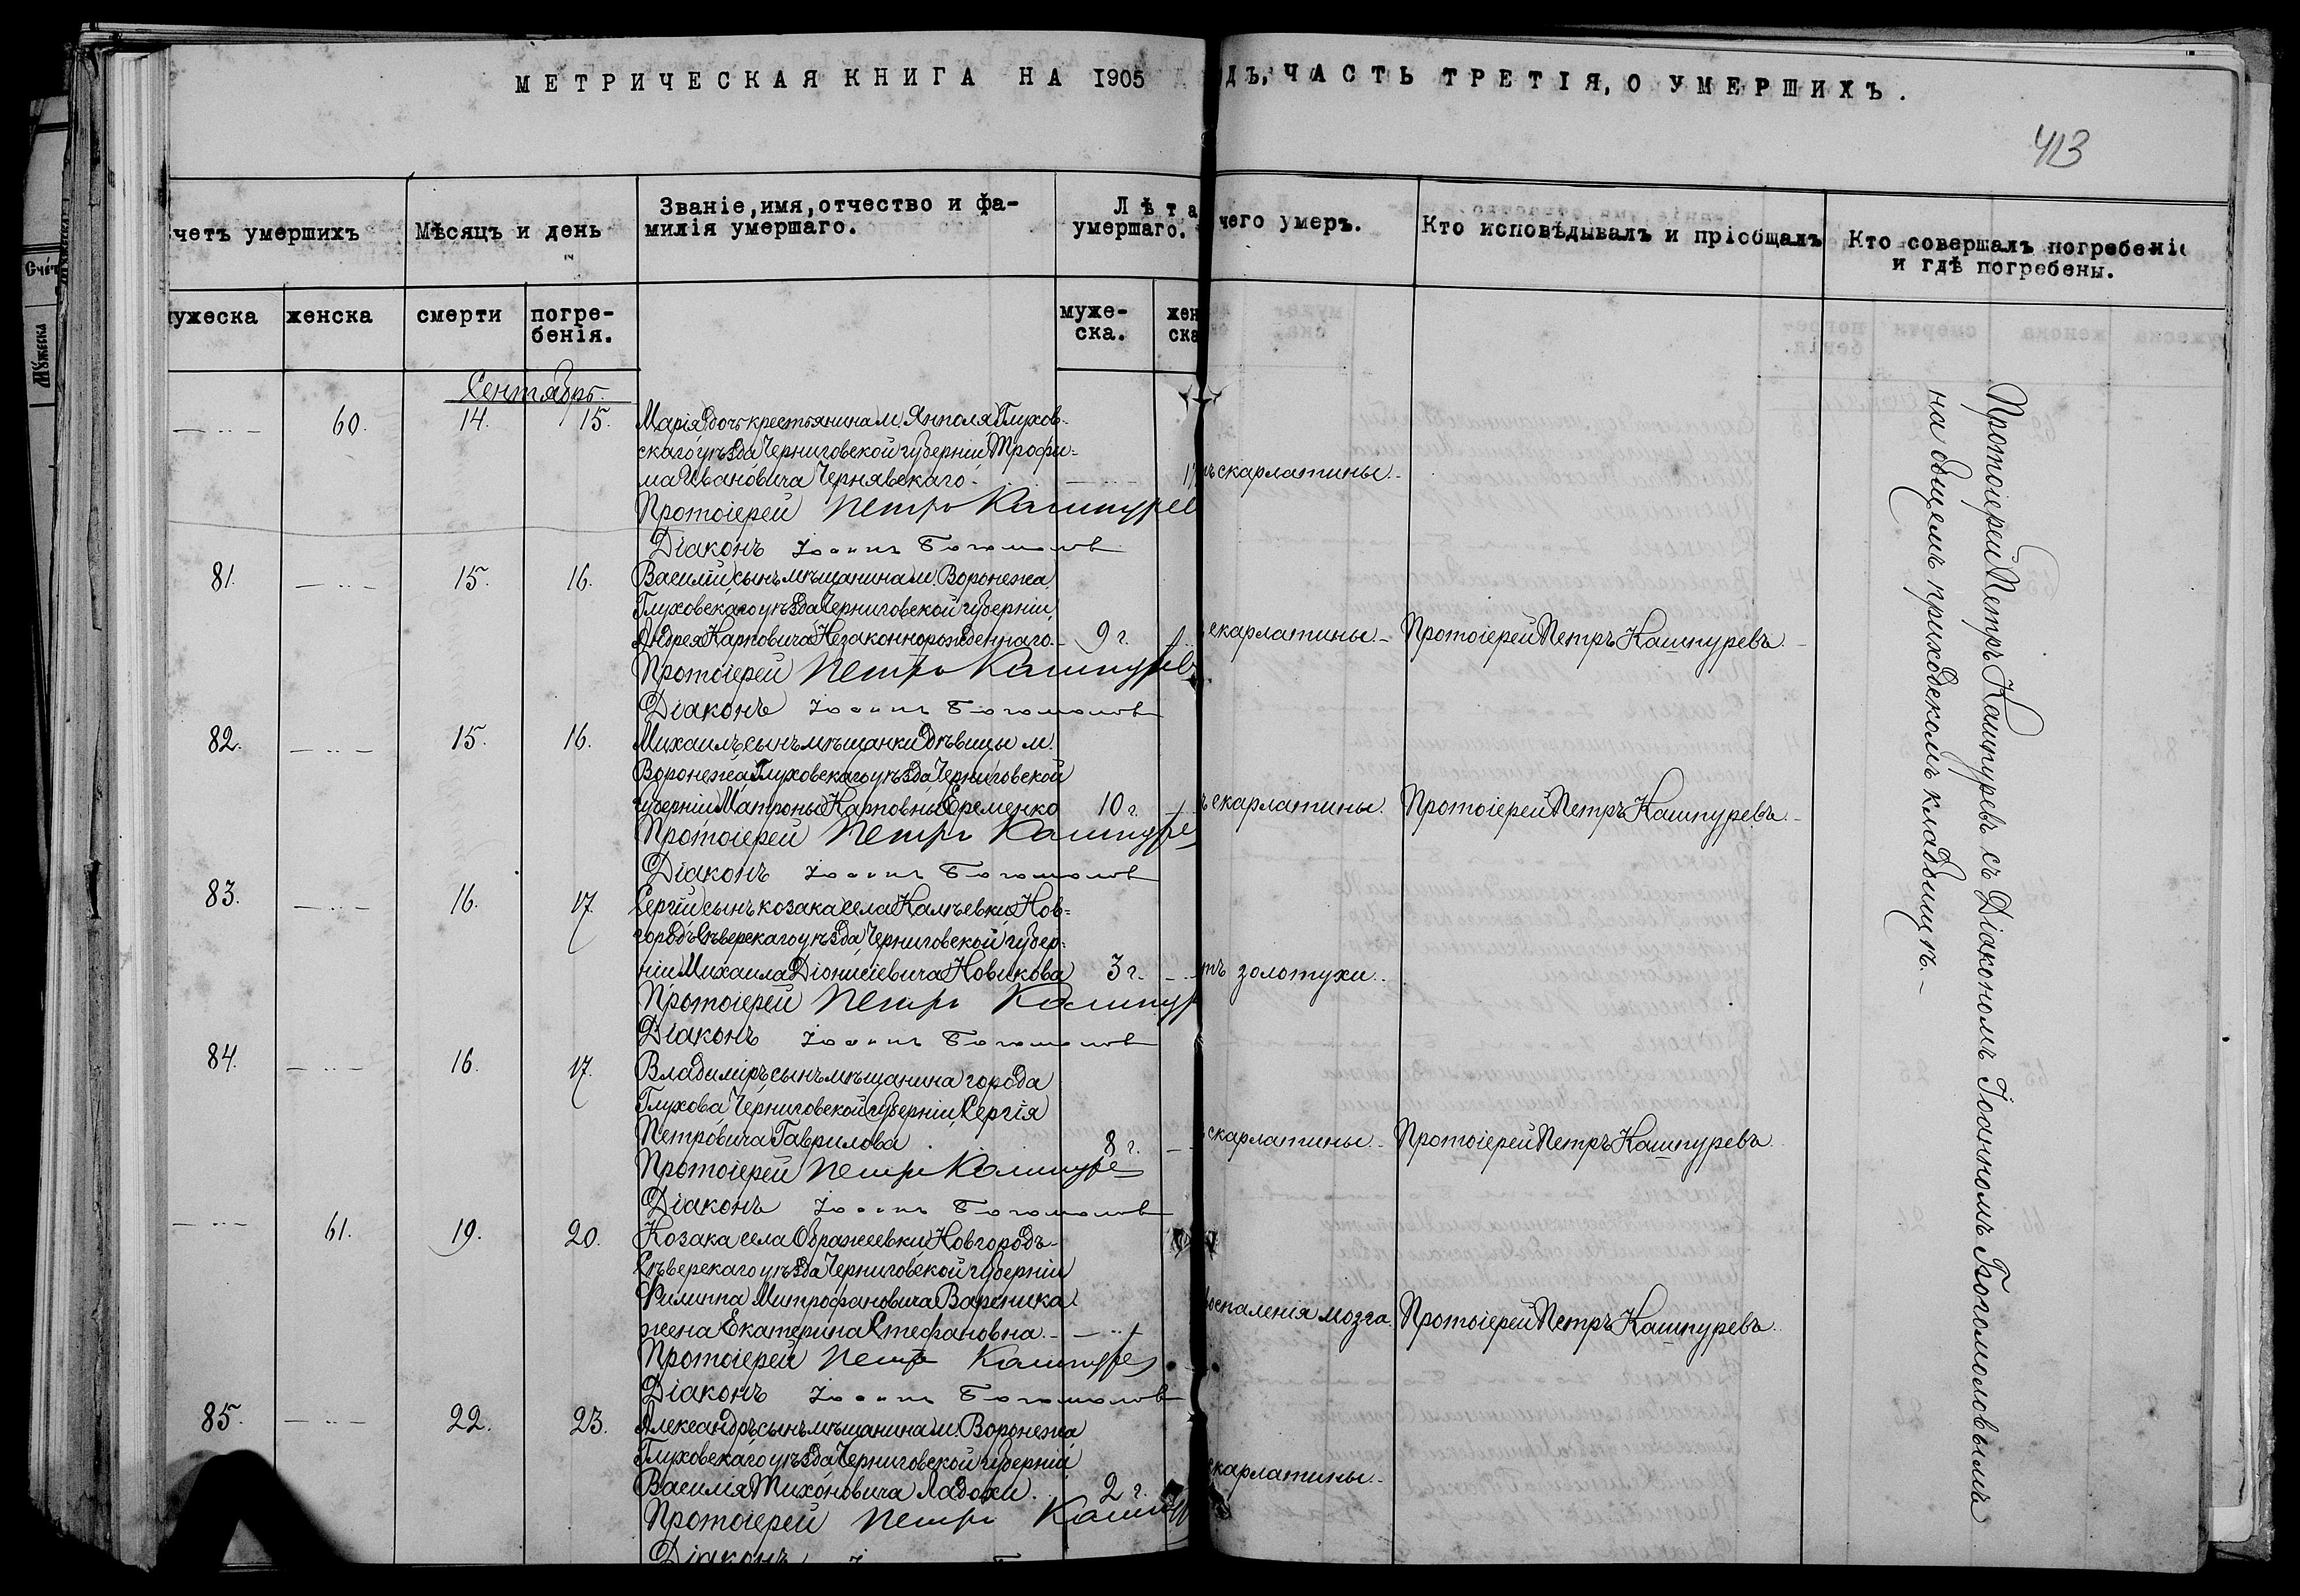 МЕТРИЧЕСКАЯ КНИГА НА 1905 ДЪ, ЧАСТЬ ТРЕТІЯ, О УМЕРШИХЪ.
413
четъ умершихъ
Мѣсяцъ и день
Званіе, имя, отчество и фа-
милія умершаго.
Лѣта
умершаго.
чего умеръ.
Кто исповѣдывалъ и пріобщалъ
Кто совершалъ погребеніе
и гдѣ погребены.
Счет
Мужеска
ужеска
женска
смерти
погре-
бенія.
муже-
ска.
жен
ска
Сентябрь.
60. 14. 15. Марія дочь крестьянина м. Янполя Глухов-
скаго уѣзда Черниговской губерніи Трофи-
ма Ивановича Чернявскаго. скарлатины.
Протоіерей Петръ Кашпурев
Діаконъ Іоаннъ Богомолов
81. 15. 16. Василій сынъ мѣщанина м. Воронежа
Глуховскаго уѣзда Черниговской губерніи
Андрея Карповича Незаконнорожденнаго. 9 г. скарлатины. Протоіерей Петръ Кашпуревъ.
Протоіерей Петръ Кашпурев
Діаконъ Іоаннъ Богомолов
82. 15. 16. Михаилъ сынъ мѣщанки дѣвицы м.
Воронежа Глуховскаго уѣзда Черниговской
губерніи Матроны Карповны Еременко 10 г. ъ скарлатины. Протоіерей Петръ Кашпуревъ.
Протоіерей Петръ Кашпуре
Діаконъ Іоаннъ Богомолов
83. 16. 17. Сергій сынъ козака села Калѣевки Нов-
городъ Сѣверскаго уѣзда Черниговской губер-
ніи Михаила Діонисіевича Новикова 3 г. тъ золотухи.
Протоіерей Петръ Кашпур
Діаконъ Іоаннъ Богомолов
84. 16. 17. Владиміръ сынъ мѣщанина города
Глухова Черниговской губерніи Сергія
Петровича Гаврилова 8 г. скарлатины. Протоіерей Петръ Кашпуревъ.
Протоіерей Петръ Кашпуре
Діаконъ Іоаннъ Богомолов
61. 19. 20. Козака села Ображеевки Новгородъ-
Сѣверскаго уѣзда Черниговской губерніи
Филиппа Митрофановича Вареника
жена Екатерина Стефановна. воспаленія мозга. Протоіерей Петръ Кашпуревъ.
Протоіерей Петръ Кашпурев
Діаконъ Іоаннъ Богомолов
85. 22. 23. Александръ сынъ мѣщанина м. Воронежа
Глуховскаго уѣзда Черниговской губерніи
Василія Тихоновича Ладохи. 2 г. скарлатины.
Протоіерей Петръ Кашпур
Діаконъ
Протоіерей Петръ Кашпуревъ съ Діакономъ Іоанномъ Богомоловымъ
на общемъ приходскомъ кладбищѣ.